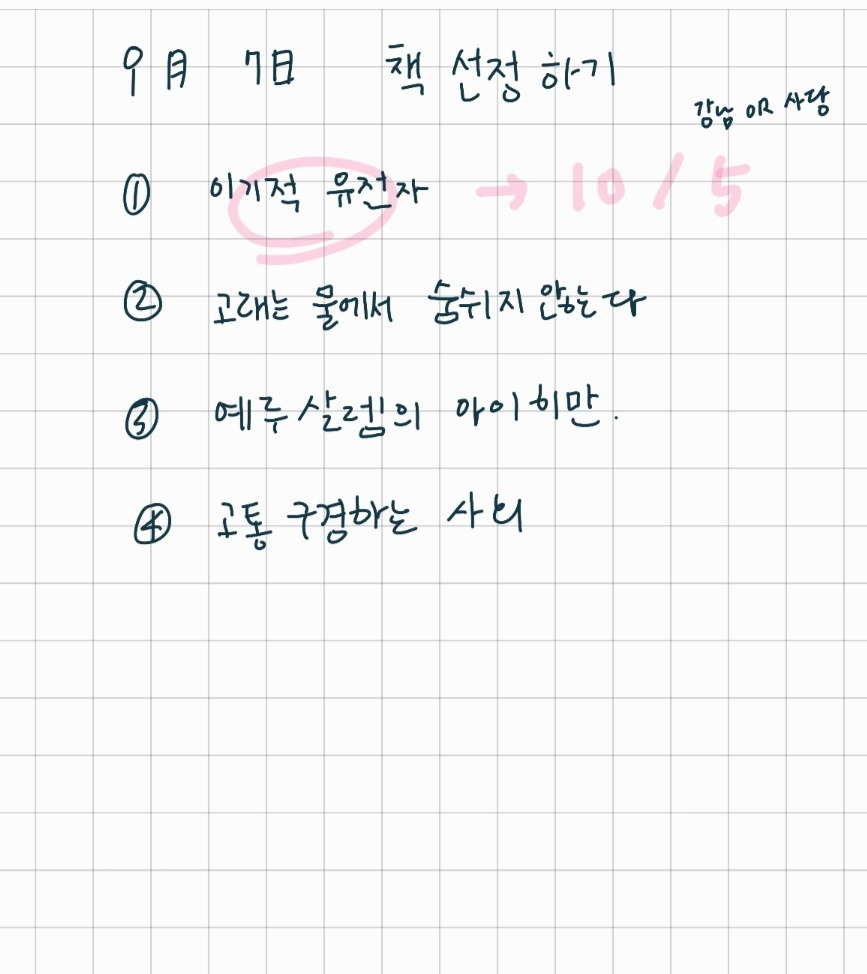 9月 7日 책 선정하기
강남 OR 사당
① 이기적 유전자 → 10 / 5
② 고래는 물에서 숨쉬지 않는다
③ 예루살렘의 아이히만.
④ 고통 구경하는 사회